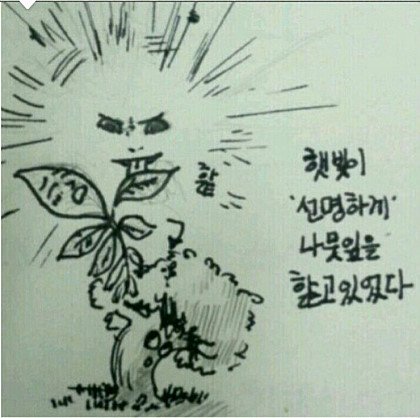 핥
햇빛이
'선명하게'
나뭇잎을
핥고있었다